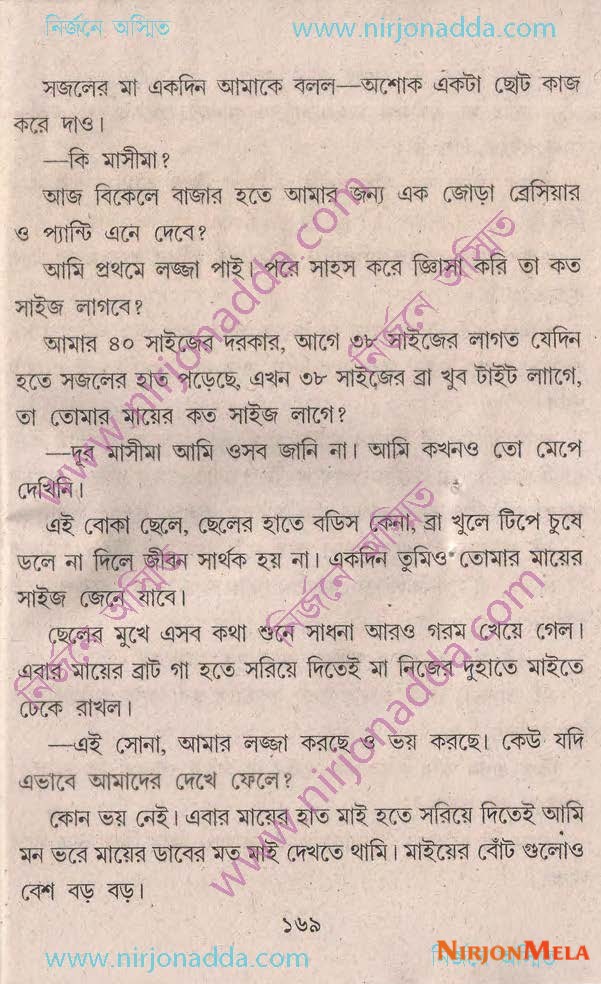 নির্জনে অস্মিত www.nirjonadda.com
সজলের মা একদিন আমাকে বলল—অশোক একটা ছোট কাজ
করে দাও।
—কি মাসীমা?
আজ বিকেলে বাজার হতে আমার জন্য এক জোড়া ব্রেসিয়ার
ও প্যান্টি এনে দেবে?
আমি প্রথমে লজ্জা পাই। পরে সাহস করে জ্ঞিাসা করি তা কত
সাইজ লাগবে?
আমার ৪০ সাইজের দরকার, আগে ৩৮ সাইজের লাগত যেদিন
হতে সজলের হাত পড়েছে, এখন ৩৮ সাইজের ব্রা খুব টাইট লাাগে,
তা তোমার মায়ের কত সাইজ লাগে?
—দূর মাসীমা আমি ওসব জানি না। আমি কখনও তো মেপে
দেখিনি।
এই বোকা ছেলে, ছেলের হাতে বডিস কেনা, ব্রা খুলে টিপে চুষে
ডলে না দিলে জীবন সার্থক হয় না। একদিন তুমিও তোমার মায়ের
সাইজ জেনে যাবে।
ছেলের মুখে এসব কথা শুনে সাধনা আরও গরম খেয়ে গেল।
এবার মায়ের ব্রাট গা হতে সরিয়ে দিতেই মা নিজের দুহাতে মাইতে
ঢেকে রাখল।
—এই সোনা, আমার লজ্জা করছে ও ভয় করছে। কেউ যদি
এভাবে আমাদের দেখে ফেলে?
কোন ভয় নেই। এবার মায়ের হাত মাই হতে সরিয়ে দিতেই আমি
মন ভরে মায়ের ডাবের মত মাই দেখতে থামি। মাইয়ের বোঁট গুলোও
বেশ বড় বড়।
১৬৯
www.nirjonadda.com নির্জনে অস্মিত
NIRJONMELA
www.nirjonadda.com
নির্জনে অস্মিত
নির্জনে অস্মিত
নির্জনে অস্মিত
www.nirjonadda.com